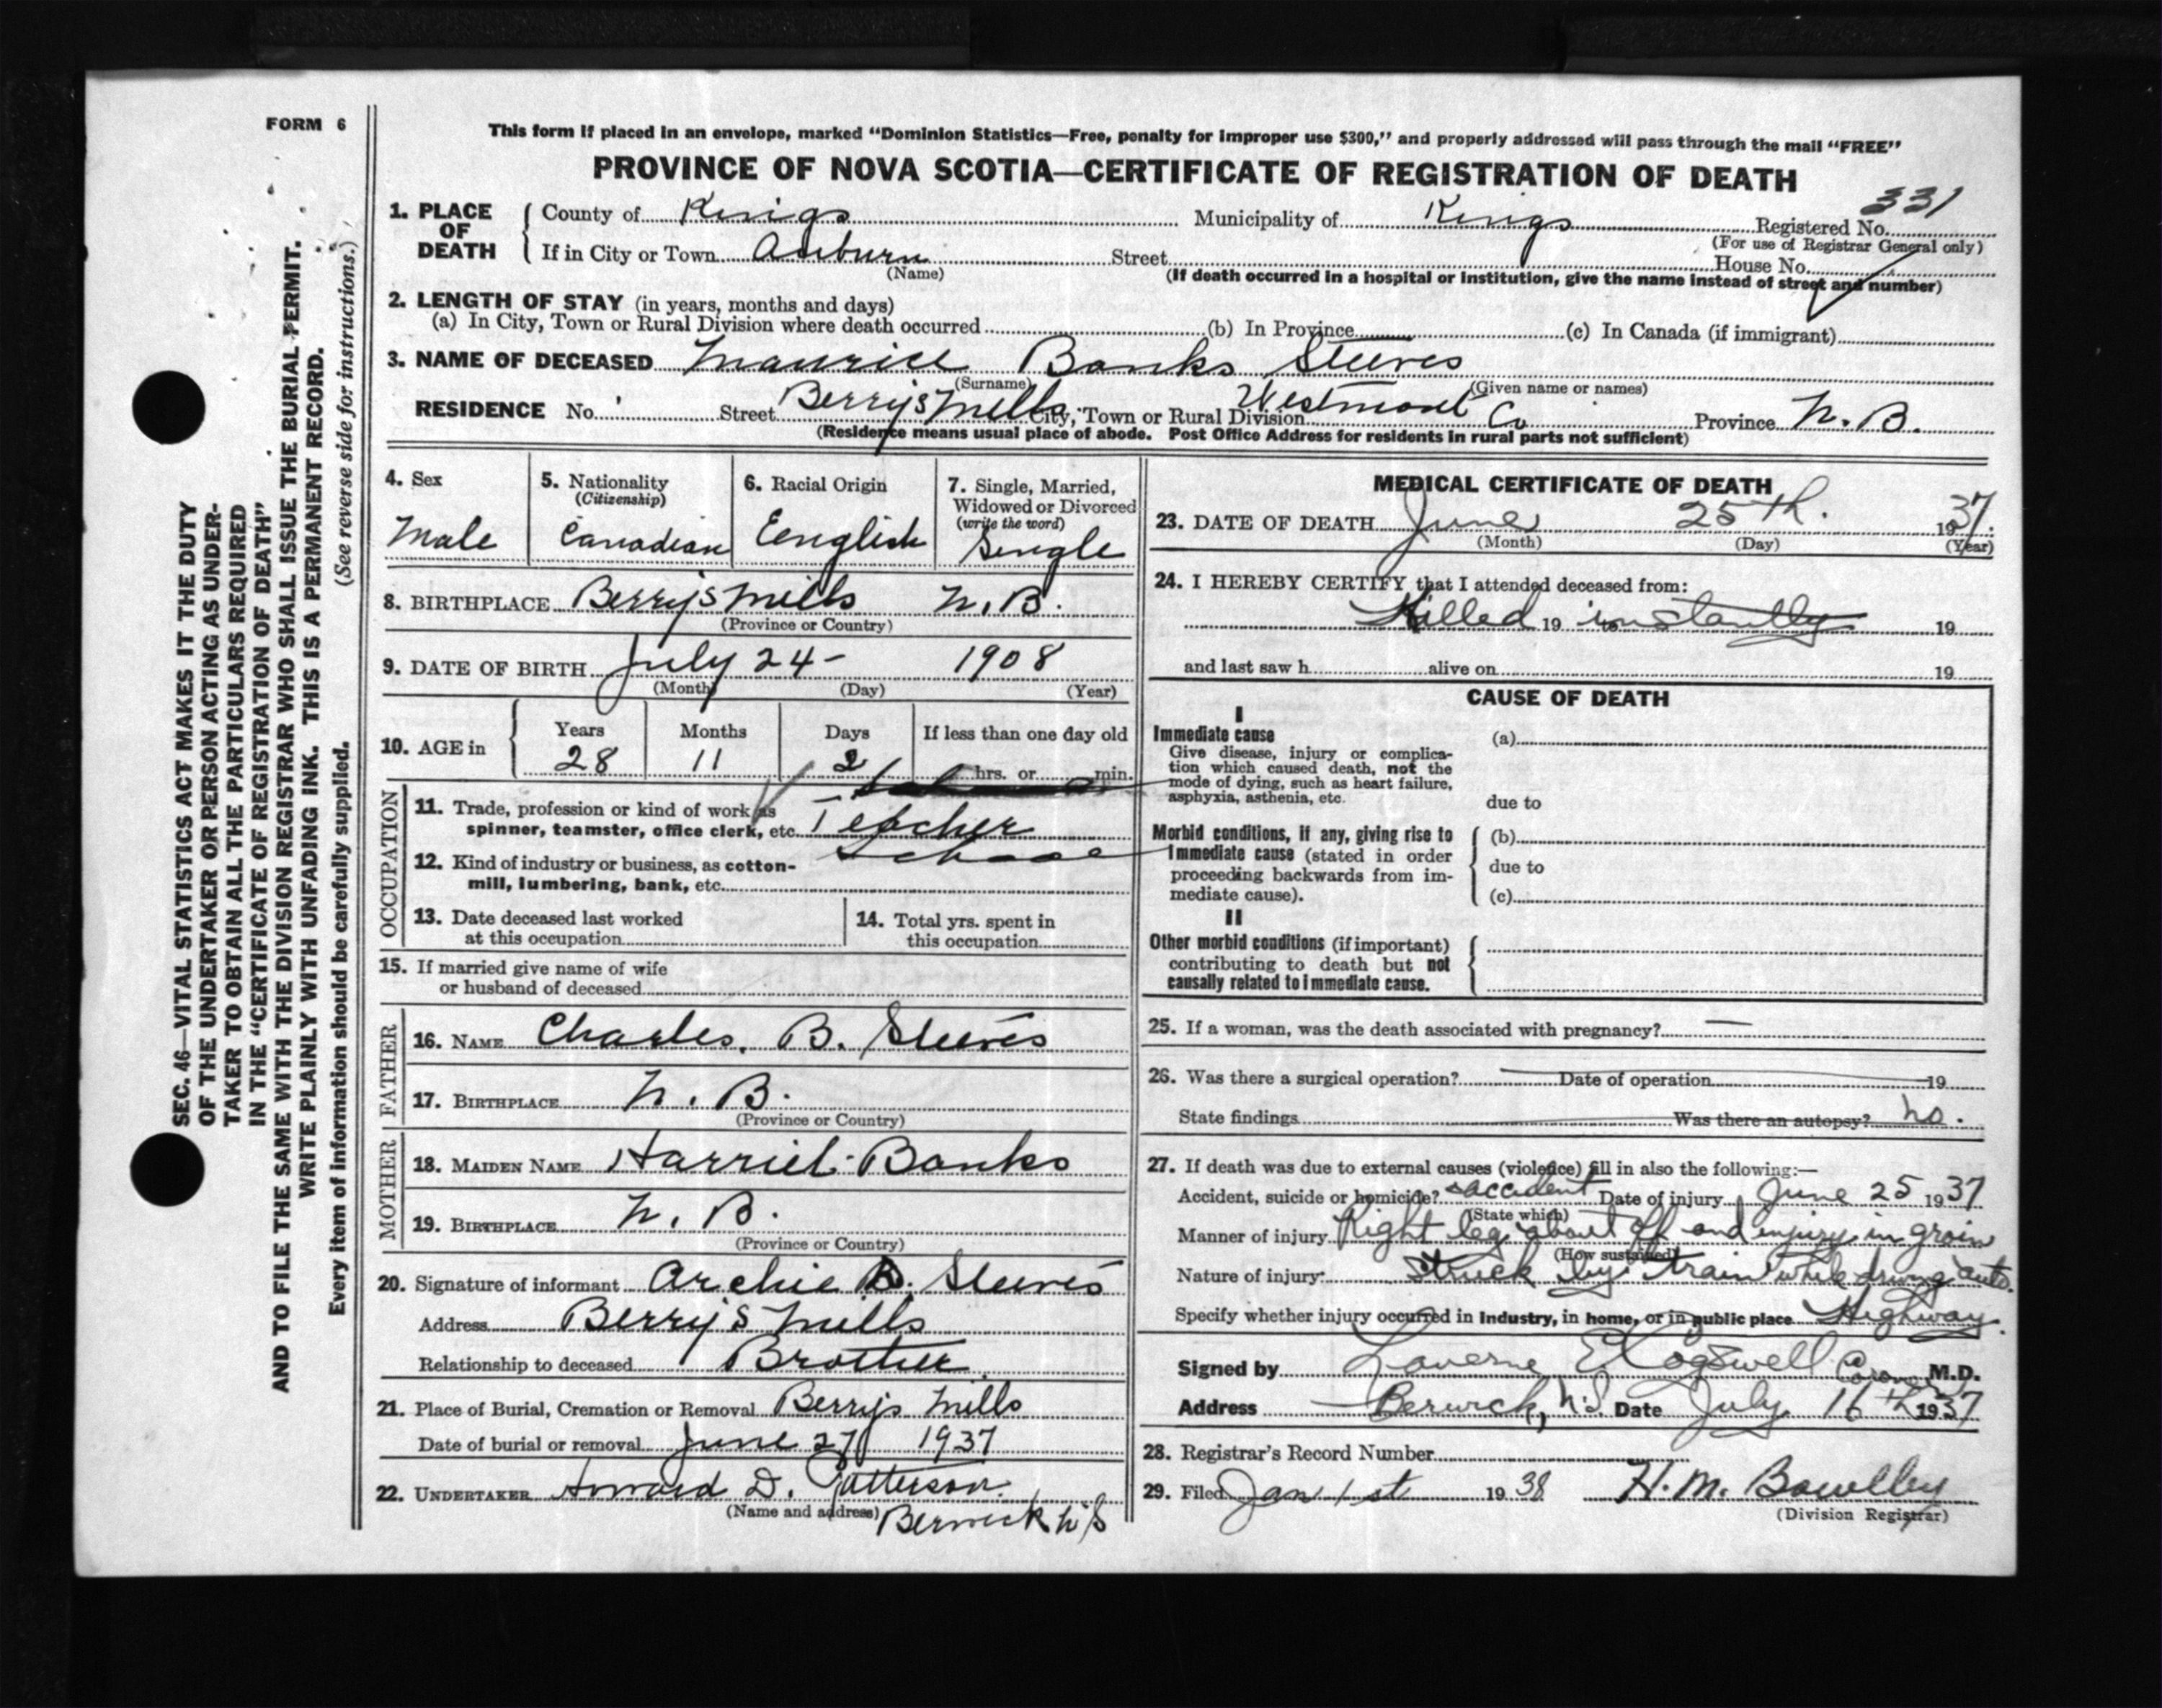 FORM 6
This form if placed in an envelope, marked “Dominion Statistics—Free, penalty for improper use $300,” and properly addressed will pass through the mail “FREE”
PROVINCE OF NOVA SCOTIA—CERTIFICATE OF REGISTRATION OF DEATH
331
1. PLACE OF DEATH { County of Kings Municipality of Kings Registered No.
(For use of Registrar General only)
If in City or Town Auburn Street House No.
(Name) (If death occurred in a hospital or institution, give the name instead of street and number)
2. LENGTH OF STAY (in years, months and days)
(a) In City, Town or Rural Division where death occurred (b) In Province (c) In Canada (if immigrant)
3. NAME OF DECEASED Maurice Banks Steeves
(Surname) (Given name or names)
RESIDENCE No. Street Berry's Mills City, Town or Rural Division Westmorel Co Province N.B.
(Residence means usual place of abode. Post Office Address for residents in rural parts not sufficient)
4. Sex
Male
5. Nationality
(Citizenship)
Canadian
6. Racial Origin
Eenglish
7. Single, Married,
Widowed or Divorced
(write the word)
Single
8. BIRTHPLACE Berry's Mills N.B.
(Province or Country)
9. DATE OF BIRTH July 24- 1908
(Month) (Day) (Year)
10. AGE in { Years Months Days If less than one day old
28 11 2 hrs. or min.
OCCUPATION
11. Trade, profession or kind of work as
spinner, teamster, office clerk, etc. Teacher
12. Kind of industry or business, as cotton-
mill, lumbering, bank, etc. School
13. Date deceased last worked
at this occupation
14. Total yrs. spent in
this occupation
15. If married give name of wife
or husband of deceased
FATHER
16. NAME Charles. B. Steeves
17. BIRTHPLACE N. B.
(Province or Country)
MOTHER
18. MAIDEN NAME Harriet Banks
19. BIRTHPLACE N. B.
(Province or Country)
20. Signature of informant Archie B. Steeves
Address Berry's Mills
Relationship to deceased Brother
21. Place of Burial, Cremation or Removal Berrys Mills
Date of burial or removal June 27 1937
22. UNDERTAKER Howard D. Patterson.
(Name and address) Berwick N S
MEDICAL CERTIFICATE OF DEATH
23. DATE OF DEATH June 25th. 1937.
(Month) (Day) (Year)
24. I HEREBY CERTIFY that I attended deceased from:
Killed 19 to instantly 19
and last saw h alive on 19
CAUSE OF DEATH
I
Immediate cause
Give disease, injury or complica-
tion which caused death, not the
mode of dying, such as heart failure,
asphyxia, asthenia, etc.
(a)
due to
Morbid conditions, if any, giving rise to
immediate cause (stated in order
proceeding backwards from im-
mediate cause).
(b)
due to
(c)
II
Other morbid conditions (if important)
contributing to death but not
causally related to immediate cause.
25. If a woman, was the death associated with pregnancy? —
26. Was there a surgical operation? Date of operation 19
State findings Was there an autopsy? no.
27. If death was due to external causes (violence) fill in also the following:—
Accident, suicide or homicide? accident Date of injury June 25 1937
(State which)
Manner of injury Right leg about off and injury in groin
(How sustained)
Nature of injury: Struck by train while driving auto.
Specify whether injury occurred in industry, in home, or in public place Highway.
Signed by Laverne E Cogswell Coroner M.D.
Address Berwick, N.S. Date July 16th 1937
28. Registrar's Record Number
29. Filed Jan 1st 1938 H. M. Bowlby
(Division Registrar)
SEC. 46—VITAL STATISTICS ACT MAKES IT THE DUTY
OF THE UNDERTAKER OR PERSON ACTING AS UNDER-
TAKER TO OBTAIN ALL THE PARTICULARS REQUIRED
IN THE “CERTIFICATE OF REGISTRATION OF DEATH”
AND TO FILE THE SAME WITH THE DIVISION REGISTRAR WHO SHALL ISSUE THE BURIAL PERMIT.
WRITE PLAINLY WITH UNFADING INK. THIS IS A PERMANENT RECORD.
Every item of information should be carefully supplied. (See reverse side for instructions.)